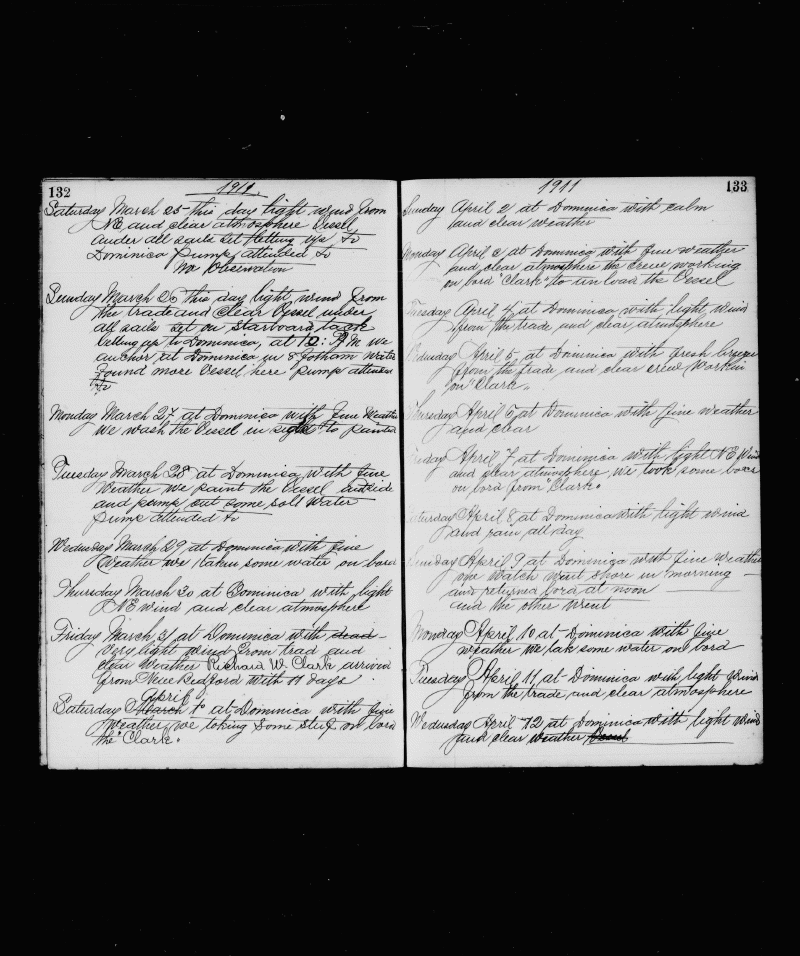 132
1911.
Saturday March 25 this day light wind from
NE, and clear atmosphere Vessel
under all sails set letting up to
Dominica Pump attended to
No Observation
Sunday March 26 This day light wind from
the trade and clear Vessel under
all sails set on starboard tack
letting up to Dominica, at 12: P,M we
anchor at Dominica in 8 fotham water
found more Vessel here pump attended
to
Monday March 27 at Dominica with fine weather
we wash the Vessel in to painted
Tuesday March 28 at Dominica with fine
weather we paint the Vessel outside
and pump out some solt water
pump attended to
Wedusday March 29 at Dominica with fine
weather we taken some water on bord
Thursday March 30 at Dominica with light
NE wind and clear atmosphere
Friday March 31 at Dominica with dead
very light wind from trad and
clear weather Richard W. Clark arrived
from New Bedford with 11 days
April
Saturday March 1 at Dominica with fine
weather, we toking some stuf on bord
the "Clark"
1911
133
Sunday April 2 at Dominica with calm
and clear weather
Monday April 3 at Dominica with fine weather
and clear atmosphere the crew working
on bord "Clark" to unload the Vessel
Tuesday April 4 at Dominica with light wind
from the trade and clear atmosphere
Wedusday April 5 at Dominica with fresh
from the trade and clear crew workin
on "Clark"
Thursday April 6 at Dominica with fine weather
and clear
Friday April 7 at Dominica with light NE Wind
and clear atmosphere we took some
on bord from "Clark"
Saturday April 8 at Dominica with light wind
and rain all day
Sunday April 9 at Dominica with fine weather
one watch went shore in morning
and returned bord at noon
and the other went
Monday April 10 at Dominica with fine
weather we tak some water on bord
Tuesday April 11 at Dominica with light wind
from the trade and clear atmosphere
Wedusday April 12 at Dominica with light wind
and clear weather Vessel